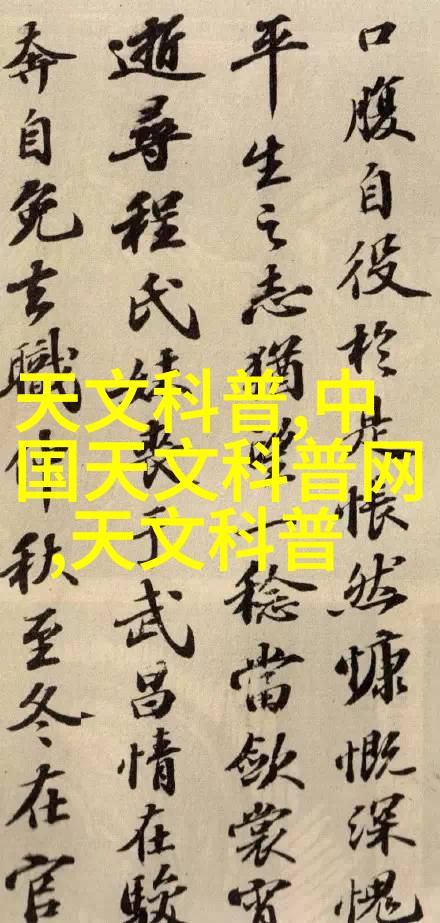 口腹自役於是悵然慷慨深愧
平生之志猶望一稔當歛裳宵
逝尋程氏妹喪于武昌情在駿
奔自免去職仲秋至冬在官
天文科普,中
国天文科普网
,天文科普